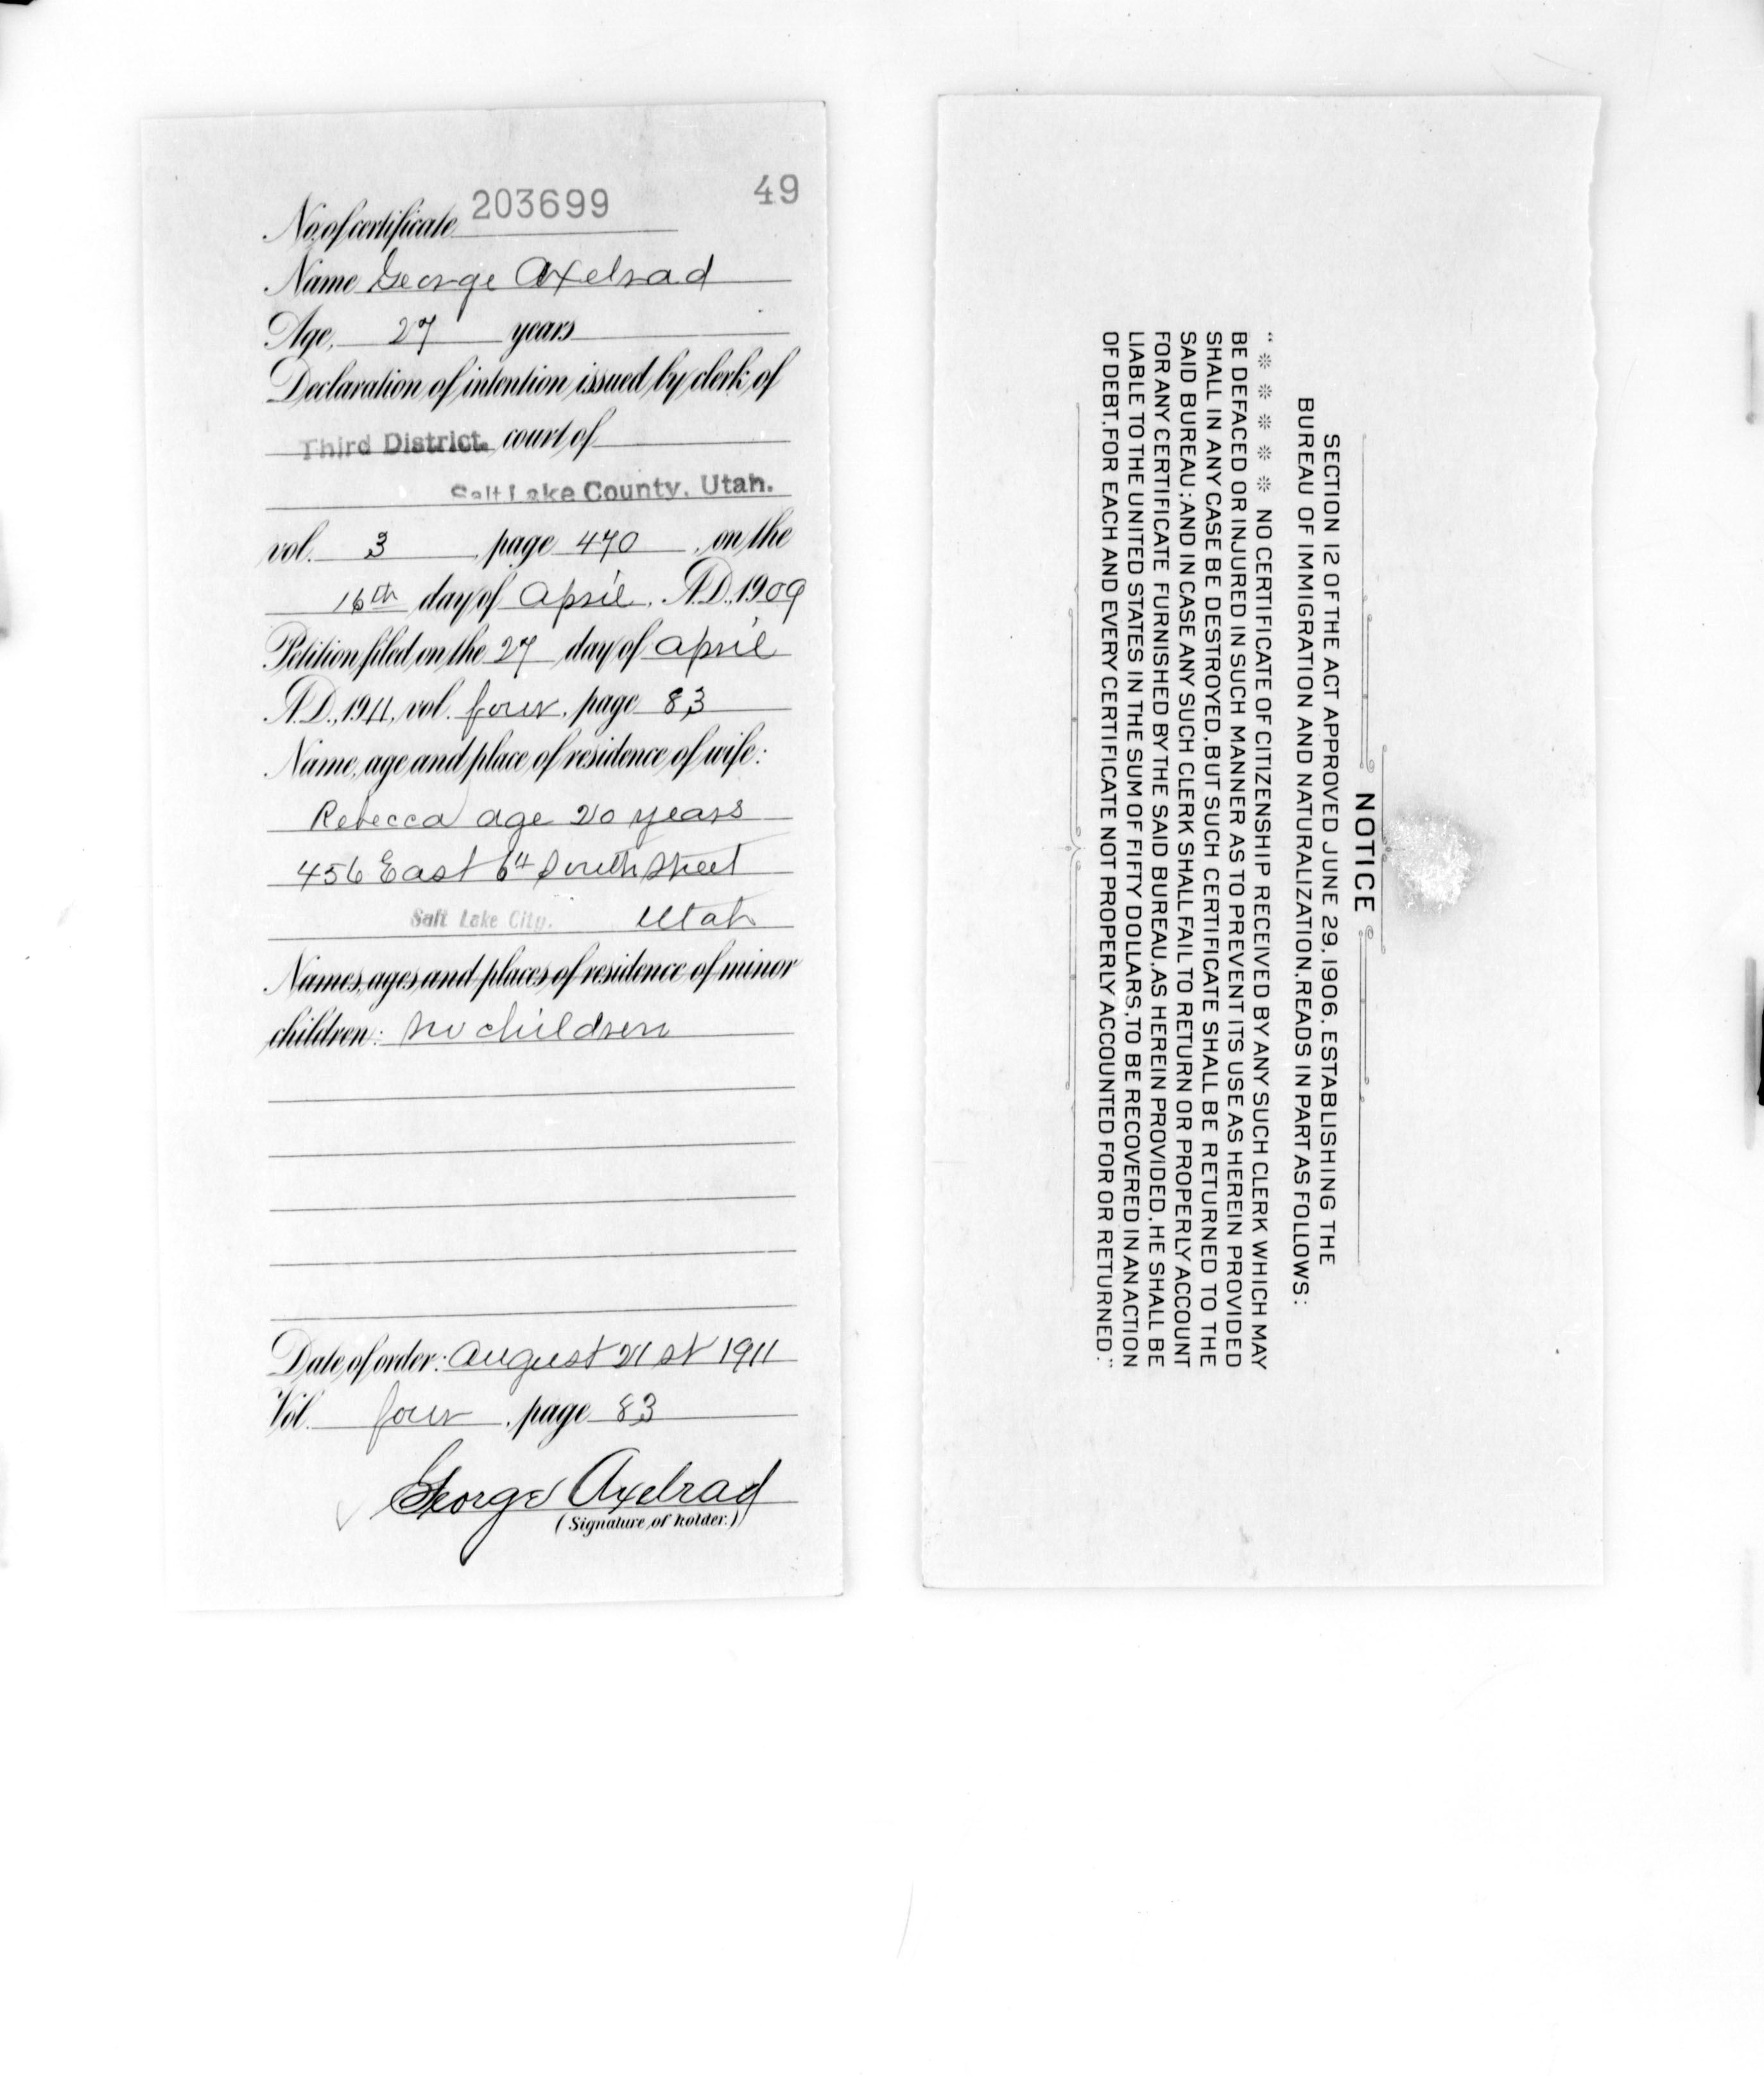 49
No. of certificate 203699
Name George Axelrad
Age, 27 years
Declaration of intention issued by clerk of
Third District. court of
Salt Lake County, Utah.
vol. 3, page 470, on the
16th day of April, A.D., 1909
Petition filed on the 27 day of April
A.D., 1911, vol. four, page 83
Name, age and place of residence of wife:
Rebecca age 20 years
456 East 6th South Street
Salt Lake City. Utah
Names, ages and places of residence of minor
children: no children
Date of order: August 21st 1911
Vol. four, page 83
George Axelrad
(Signature of holder.)
NOTICE
SECTION 12 OF THE ACT APPROVED JUNE 29, 1906, ESTABLISHING THE
BUREAU OF IMMIGRATION AND NATURALIZATION, READS IN PART AS FOLLOWS:
"* * * * * NO CERTIFICATE OF CITIZENSHIP RECEIVED BY ANY SUCH CLERK WHICH MAY
BE DEFACED OR INJURED IN SUCH MANNER AS TO PREVENT ITS USE AS HEREIN PROVIDED
SHALL IN ANY CASE BE DESTROYED, BUT SUCH CERTIFICATE SHALL BE RETURNED TO THE
SAID BUREAU; AND IN CASE ANY SUCH CLERK SHALL FAIL TO RETURN OR PROPERLY ACCOUNT
FOR ANY CERTIFICATE FURNISHED BY THE SAID BUREAU, AS HEREIN PROVIDED, HE SHALL BE
LIABLE TO THE UNITED STATES IN THE SUM OF FIFTY DOLLARS, TO BE RECOVERED IN AN ACTION
OF DEBT, FOR EACH AND EVERY CERTIFICATE NOT PROPERLY ACCOUNTED FOR OR RETURNED."